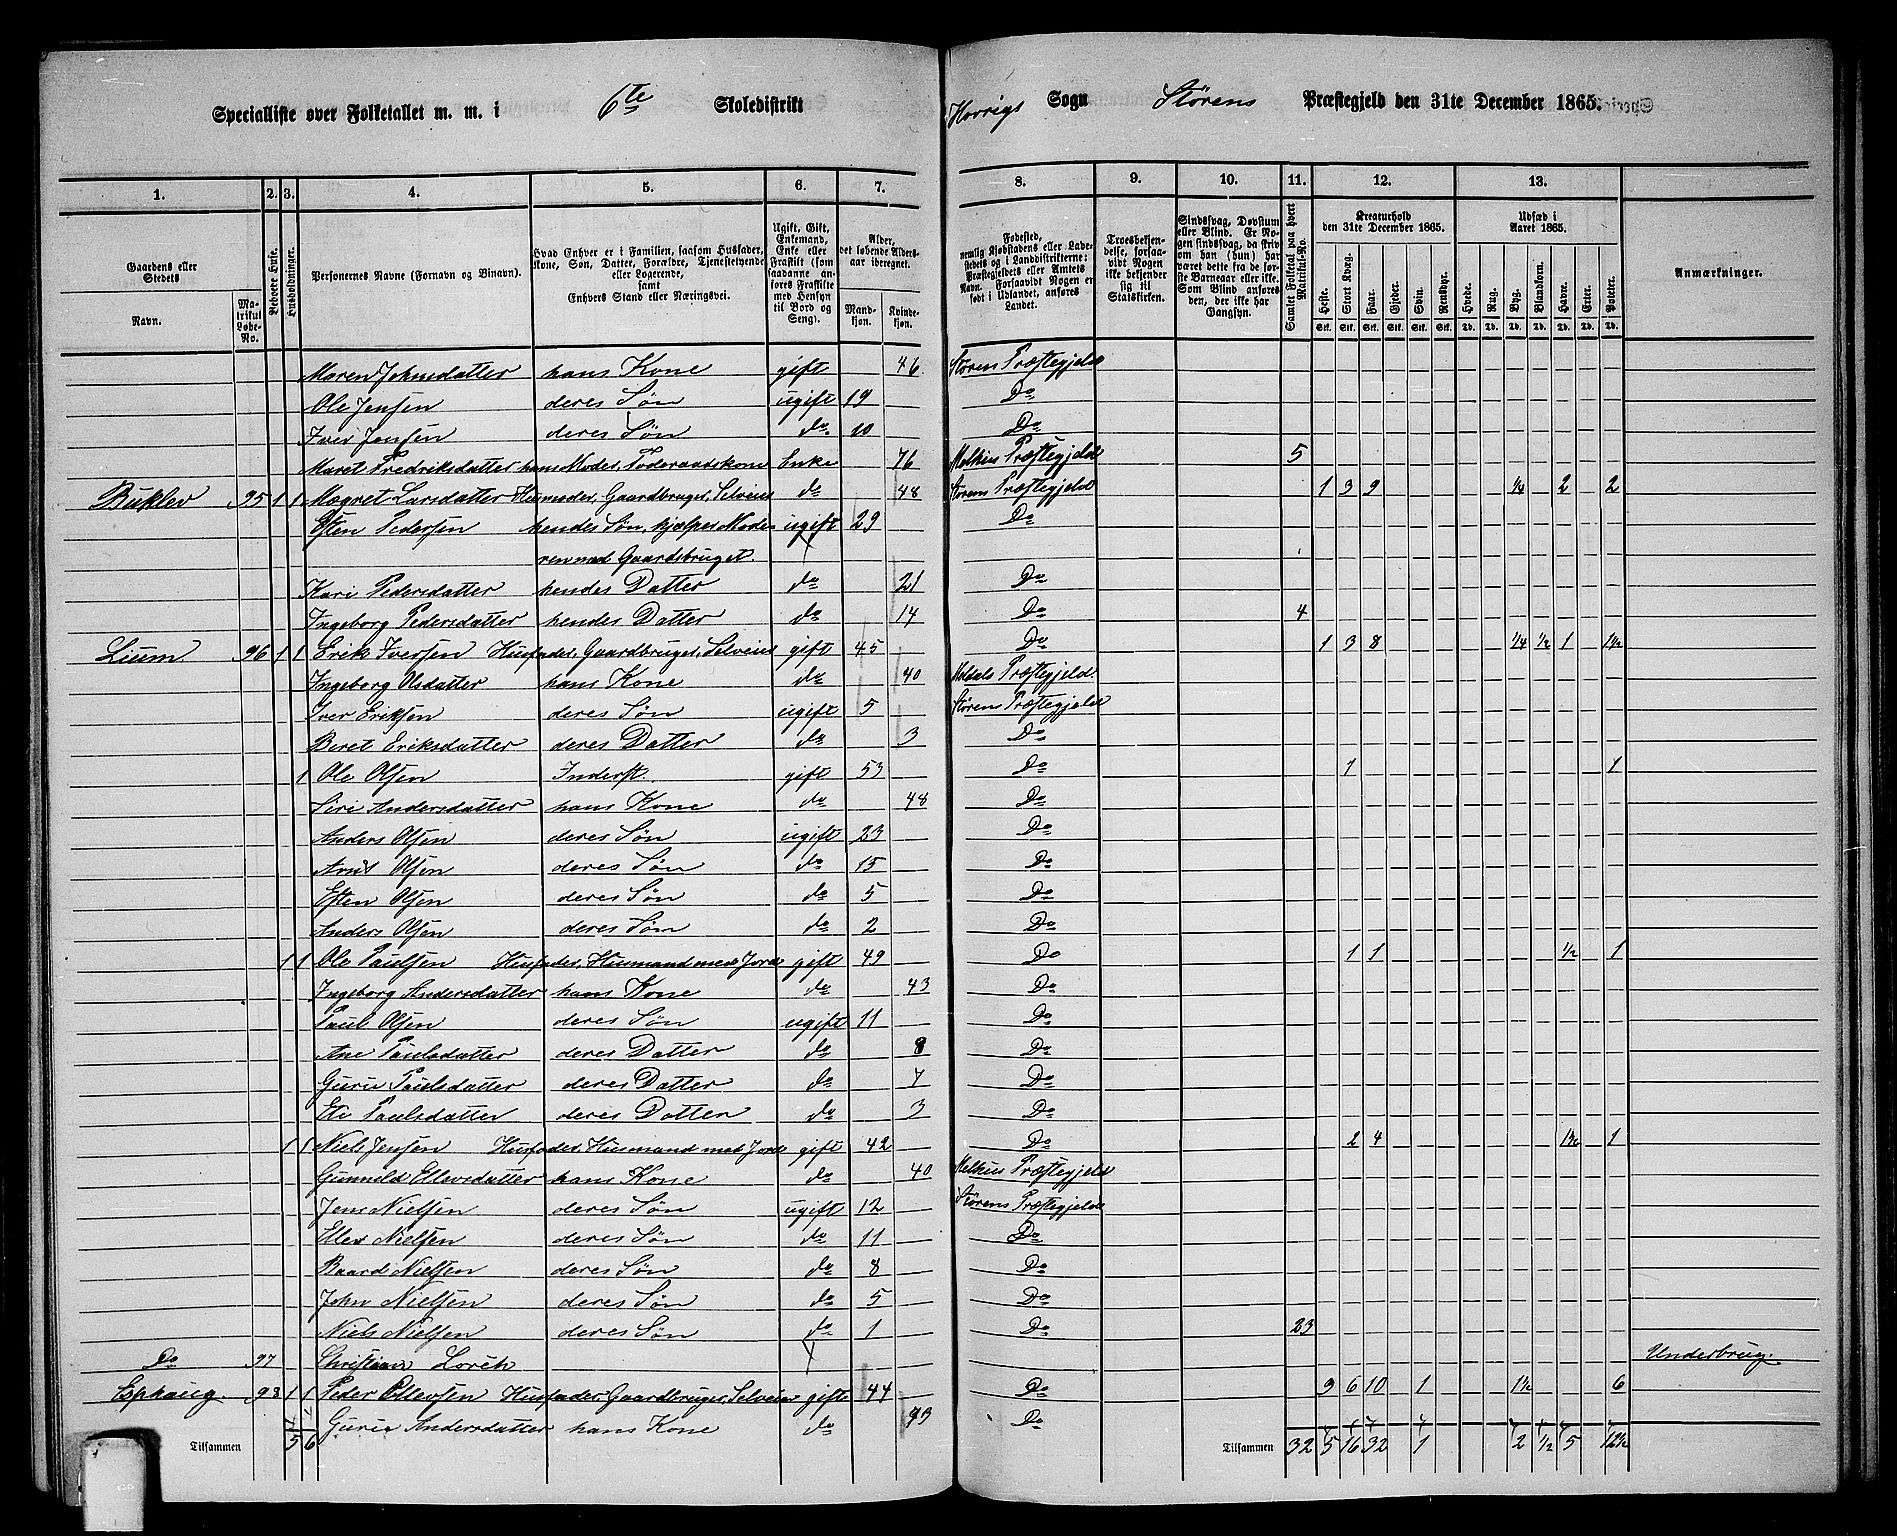 Specialliste over Folketallet m. m. i 6te Skoledistrikt
Horrigs Sogn Störens Præstegjeld den 31te December 1865.
1. 2. 3. 4. 5. 6. 7.
8. 9. 10. 11. 12. 13.
Gaardens eller Stedets Navn.
Matrikul Løbe-No.
Beboede Huse.
Husholdninger.
Personernes Navne (Fornavn og Binavn).
Hvad Enhver er i Familien, saasom Husfader, Hustru, Søn, Datter, Forældre, Tjenestetyende eller Logerende, samt Enhvers Stand eller Næringsvei.
Ugift, Gift, Enkemand, Enke eller Fraskilt (som saadanne anføres Fraskilte med Hensyn til Bord og Seng).
Alder, det løbende Aldersaar iberegnet.
Mandkjøn. Kvindekjøn.
Troesbekjendelse, forsaavidt Nogen ikke bekjender sig til Statskirken.
Samlet Folketal paa hvert Matrikul-No.
Kreaturhold den 31te December 1865.
Heste. Stort Kvæg. Faar. Gjeder. Svin. Rensdyr.
Udsæd i Aaret 1865.
Hvede. Rug. Byg. Blandkorn. Havre. Erter. Poteter.
Anmærkninger.
Maren Johnsdatter hans Kone gift 46 Störens Præstegjeld
Ole Jensen deres Søn ugift 19 Do
Iver Jensen deres Søn do 10 Do
Maret Fredriksdatter hans Moder, Föderaadskone Enke 76 Melhus Præstegjeld 5
Buklev 95 1 1 Magret Larsdatter Husmoder, Gaardbruger, Selveier do 48 Störens Præstegjeld 1 3 9 1/4 2 2
Esten Pedersen hendes Søn, hjælper Mode- ugift 29 Do
ren med Gaardsbruget.
Kari Pedersdatter hendes Datter do 21 Do
Ingeborg Pedersdatter hendes Datter do 14 Do 4
Lium 96 1 1 Erik Iversen Husfader, Gaardbruger, Selveier gift 45 Do 1 3 8 1/4 1/2 1 1 1/2
Ingeborg Olsdatter hans Kone do 40 Meldals Præstegjeld.
Iver Eriksen deres Søn ugift 5 Störens Præstegjeld
Beret Eriksdatter deres Datter do 3 Do
1 Ole Olsen Inderst gift 53 Do 1 1
Siri Andersdatter hans Kone do 48 Do
Anders Olsen deres Søn ugift 23 Do
Arnt Olsen deres Søn do 15 Do
Esten Olsen deres Søn do 5 Do
Anders Olsen deres Søn do 2 Do
1 1 Ole Paulsen Husfader, Husmand med Jord gift 49 Do 1 1 1/2 1
Ingeborg Andersdatter hans Kone do 43 Do
Paul Olsen deres Søn ugift 11 Do
Ane Paulsdatter deres Datter do 8 Do
Guru Paulsdatter deres Datter do 7 Do
Eli Paulsdatter deres Datter do 3 Do
1 1 Niels Jensen Husfader, Husmand med Jord gift 42 Do 2 4 1 1/2 1
Gunnild Ellevsdatter hans Kone do 40 Melhus Præstegjeld
Jens Nielsen deres Søn ugift 12 Störens Præstegjeld
Ellev Nielsen deres Søn do 11 Do
Baard Nielsen deres Søn do 8 Do
John Nielsen deres Søn do 5 Do
Niels Nielsen deres Søn do 1 Do 23
Do 97 Christian Lorch Underbrug.
Esphaug. 98 1 1 Peder Ellevsen Husfader, Gaardbruger, Selveier gift 44 Do 3 6 10 1 1 1/2 6
Guru Andersdatter hans Kone do Do
Tilsammen 5 6
Tilsammen 32 5 16 32 1 2 1/2 5 12 1/2